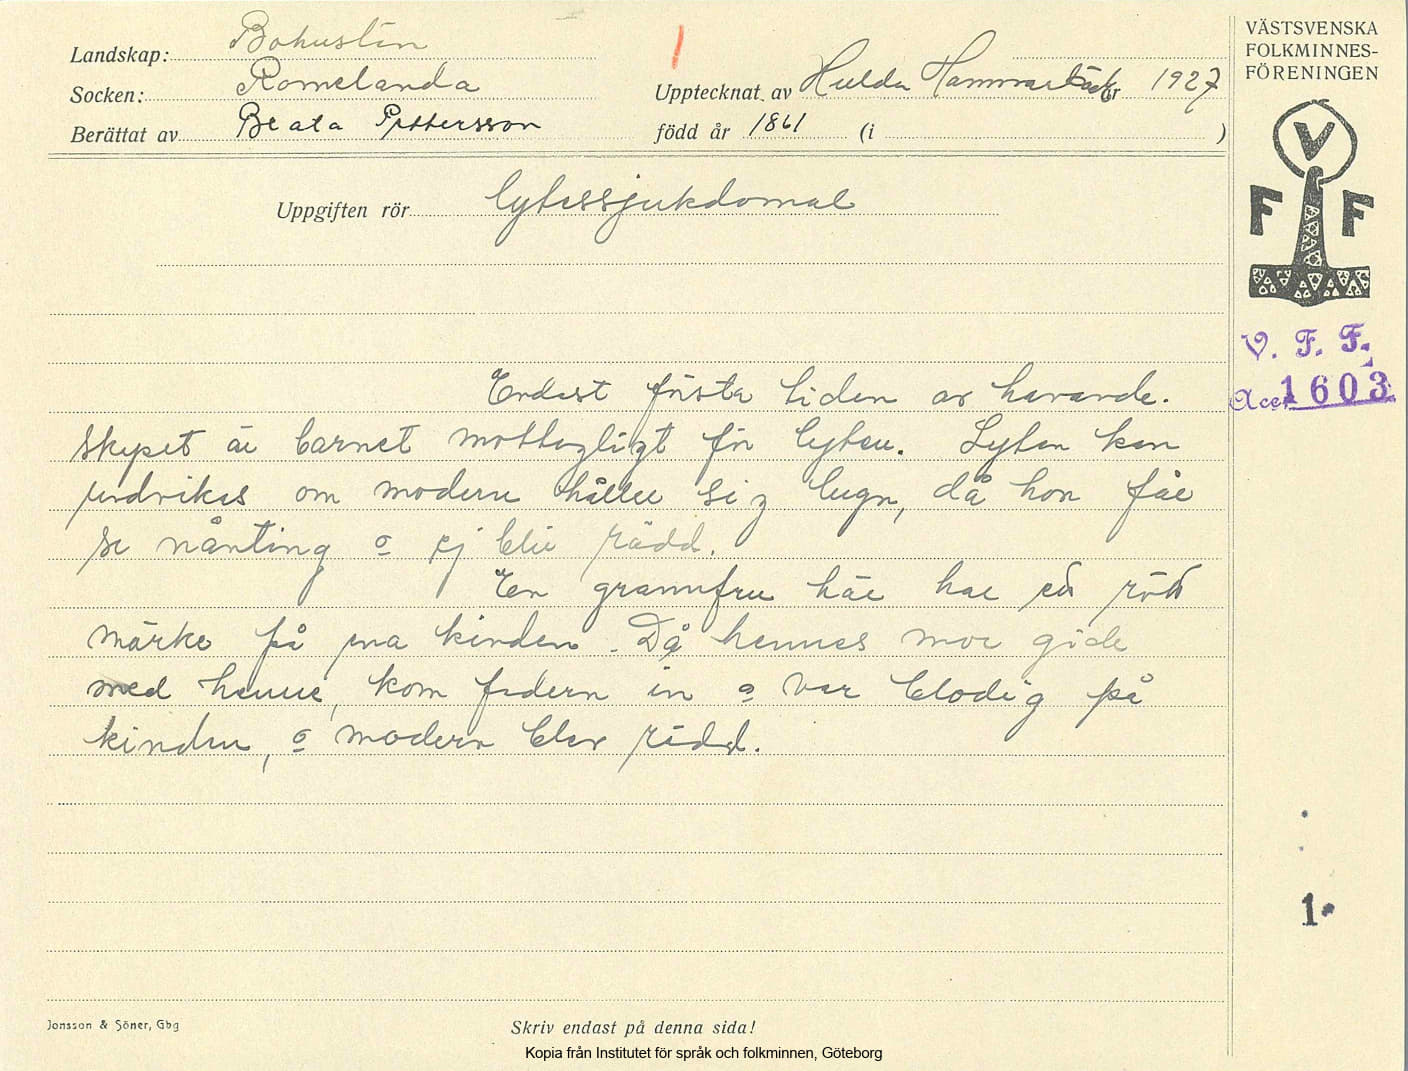 Landskap: Bohuslän
Socken: Romelanda
Berättat av Beata Pettersson
Upptecknat av Hulda Hammarbäck år 1927
född år 1861 (i )
VÄSTSVENSKA
FOLKMINNES-
FÖRENINGEN
V
F F
V. F. F.
Acc. 1603
Uppgiften rör lytessjukdomar
Endast första tiden av havande-
skapet är barnet mottagligt för lyten. Lyten kan
undvikas om modern håller sig lugn, då hon får
se nånting o ej blir rädd.
En grannfru här har ett rött
märke på ena kinden. Då hennes mor gick
med henne, kom fadern in o var blodig på
kinden, o modern blev rädd.
1.
Jonsson & Söner, Gbg
Skriv endast på denna sida!
Kopia från Institutet för språk och folkminnen, Göteborg